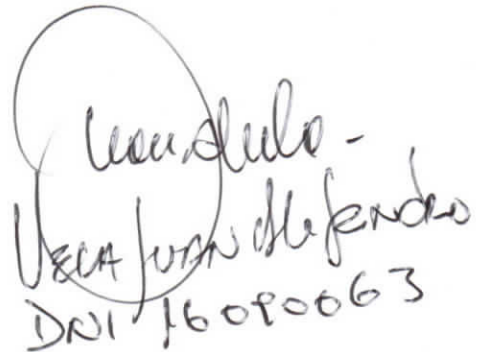 VEGA JUAN Alejandro
DNI 16090063